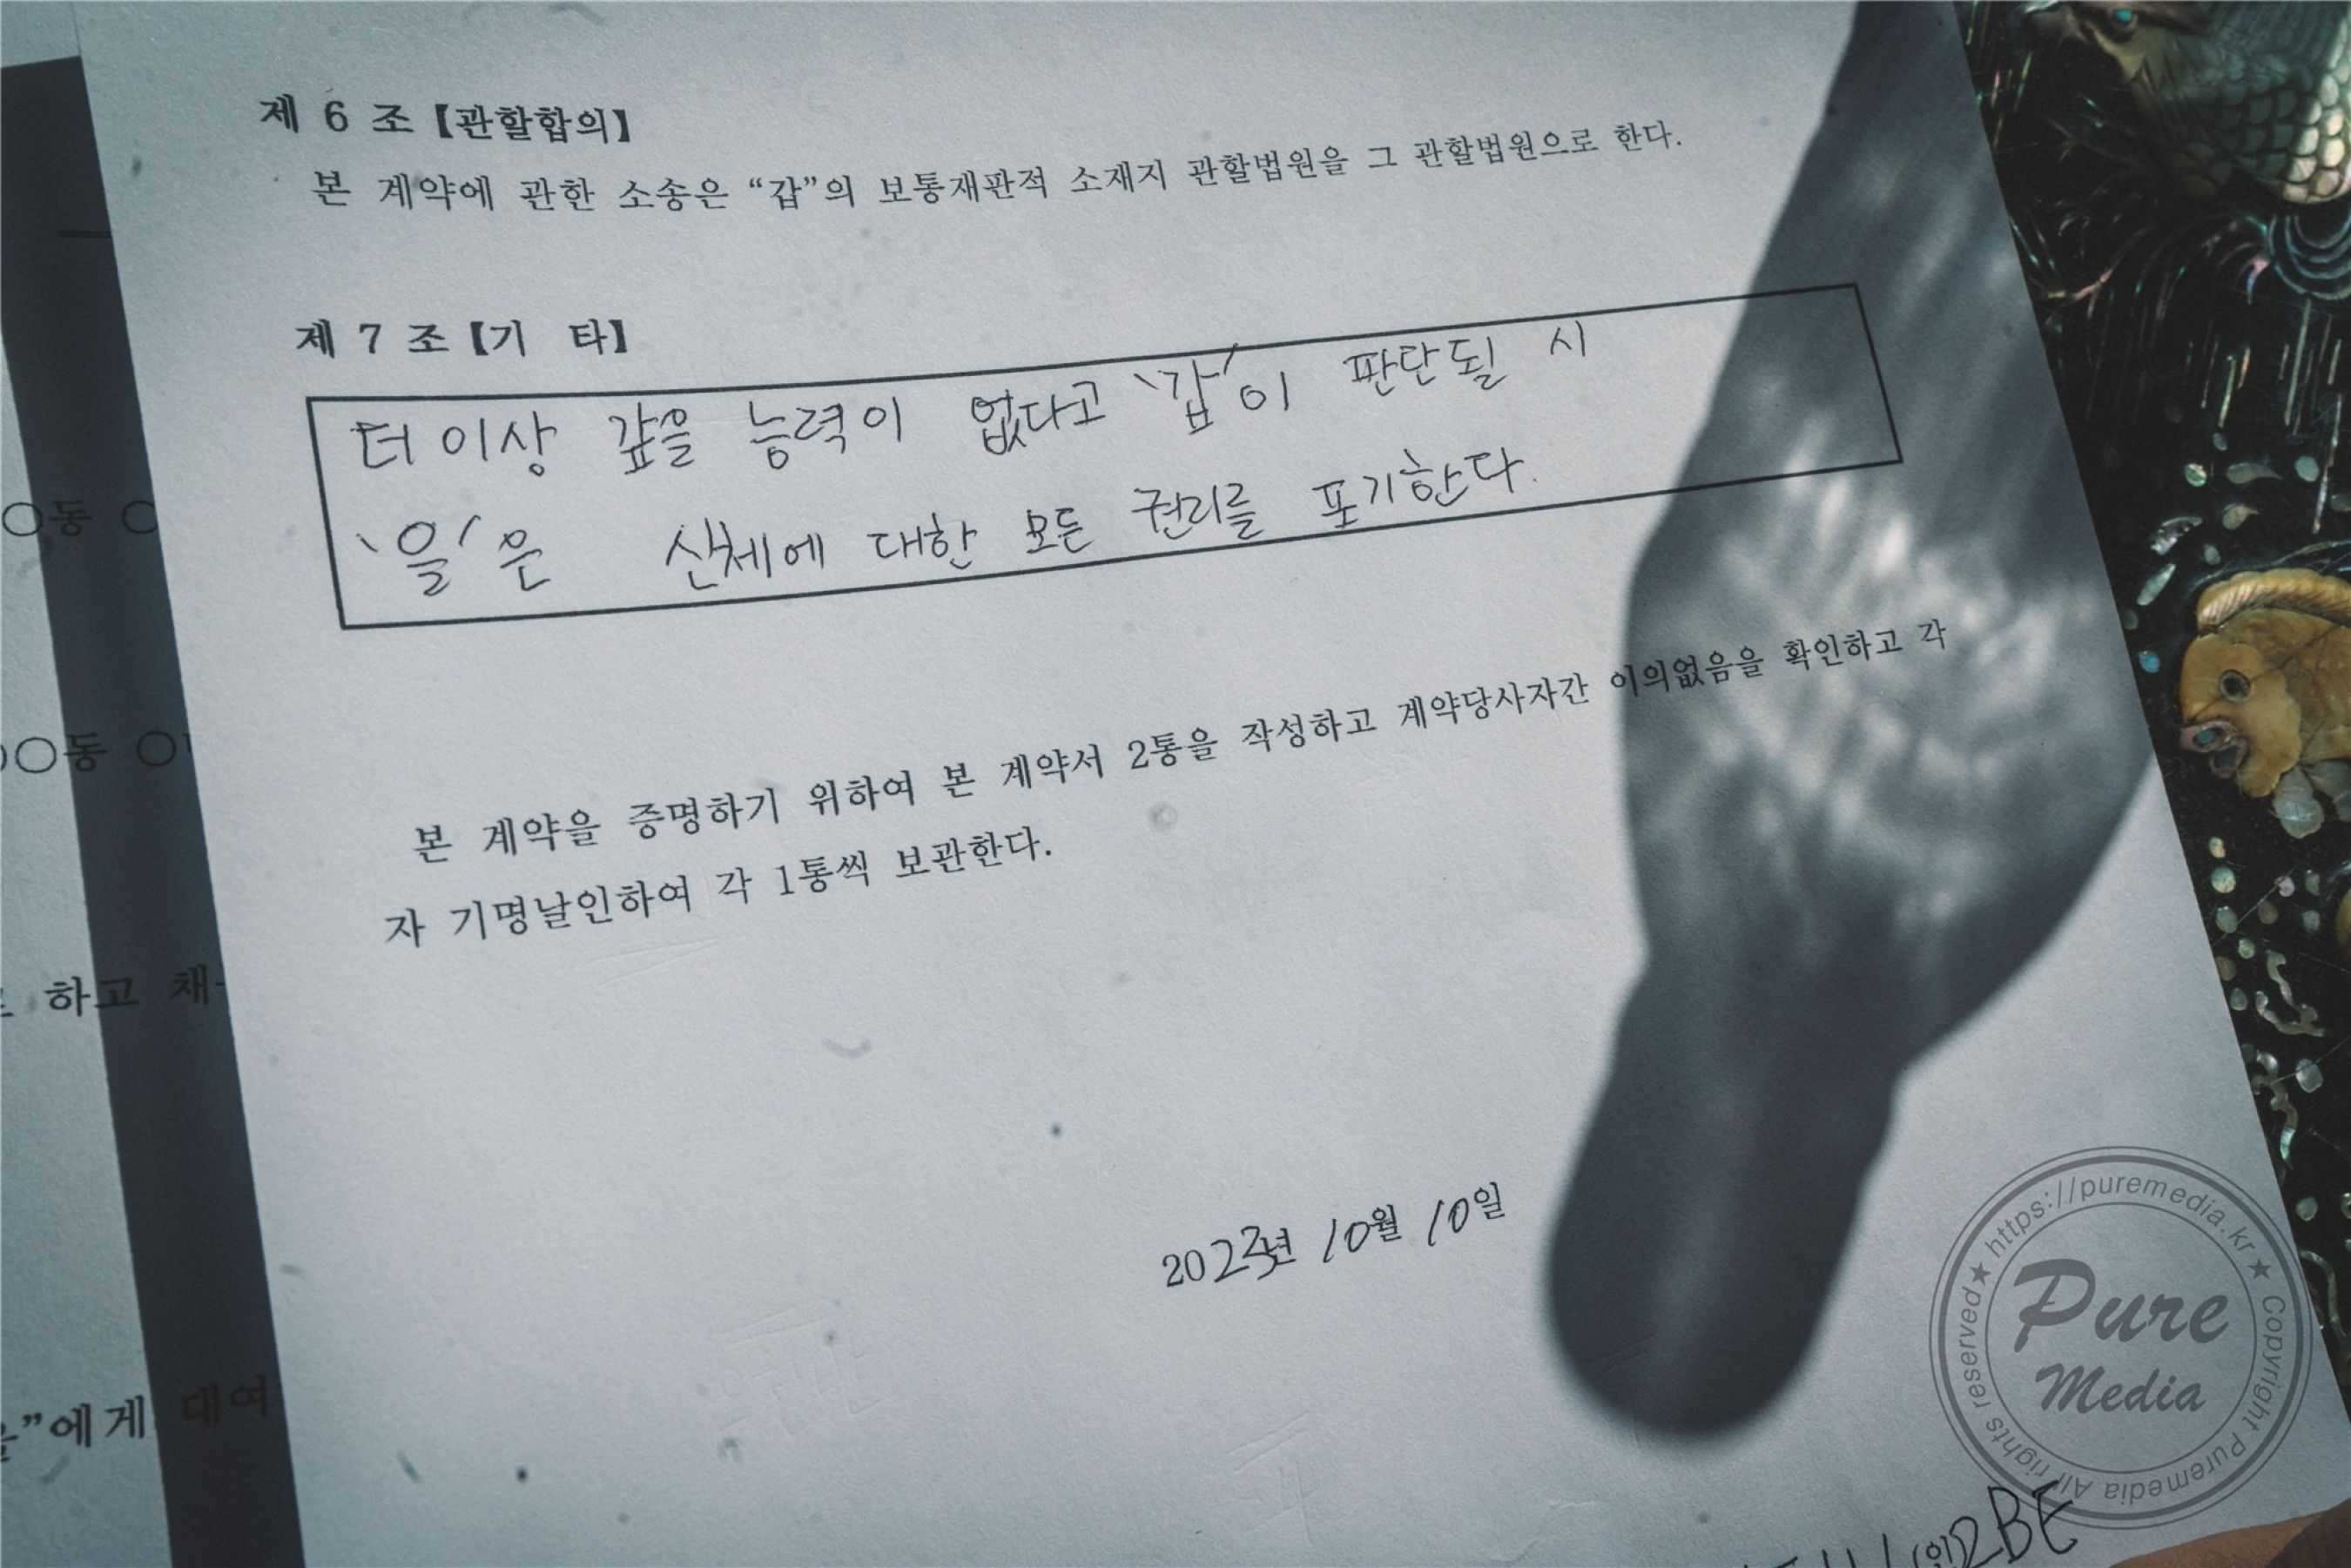 제 6 조【관할합의】
본 계약에 관한 소송은 “갑”의 보통재판적 소재지 관할법원을 그 관할법원으로 한다.
제 7 조【기 타】
더 이상 갚을 능력이 없다고 '갑'이 판단될 시
'을'은 신체에 대한 모든 권리를 포기한다.
본 계약을 증명하기 위하여 본 계약서 2통을 작성하고 계약당사자간 이의없음을 확인하고 각
자 기명날인하여 각 1통씩 보관한다.
2023년 10월 10일
(인)
○동 ○
○동 ○
하고 채
”에게 대여
https://puremedia.kr ★ Copyright Puremedia All rights reserved ★
Pure
Media